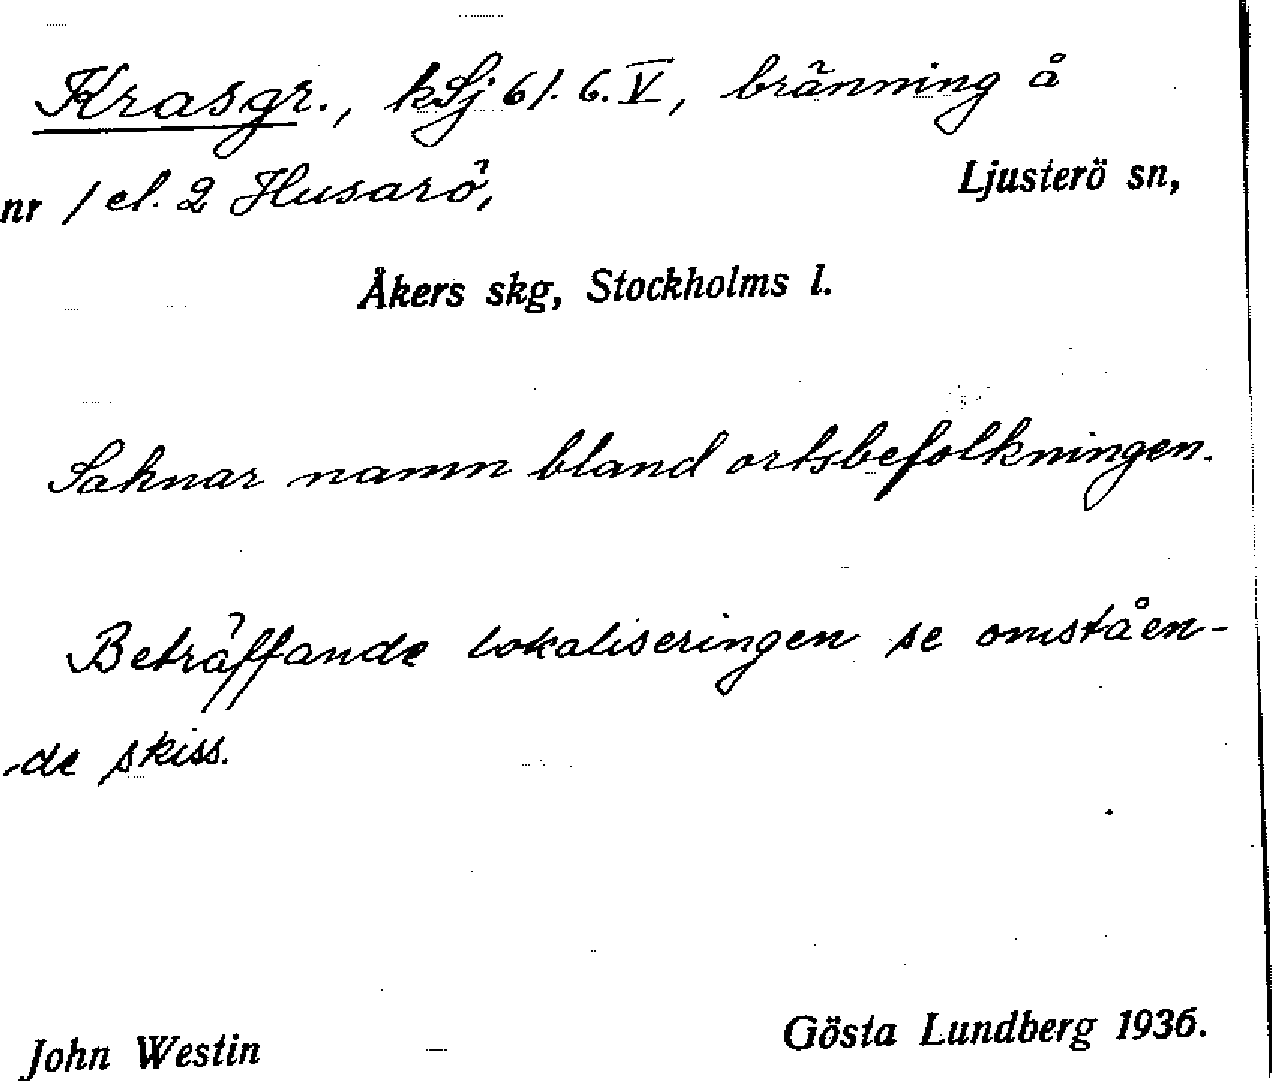 Krasgr., kSj 61. 6. V, bränning å
nr 1 el. 2 Husarö, Ljusterö sn,
Åkers skg, Stockholms l.
Saknar namn bland ortsbefolkningen.
Beträffande lokaliseringen se omståen-
-de skiss.
John Westin Gösta Lundberg 1936.